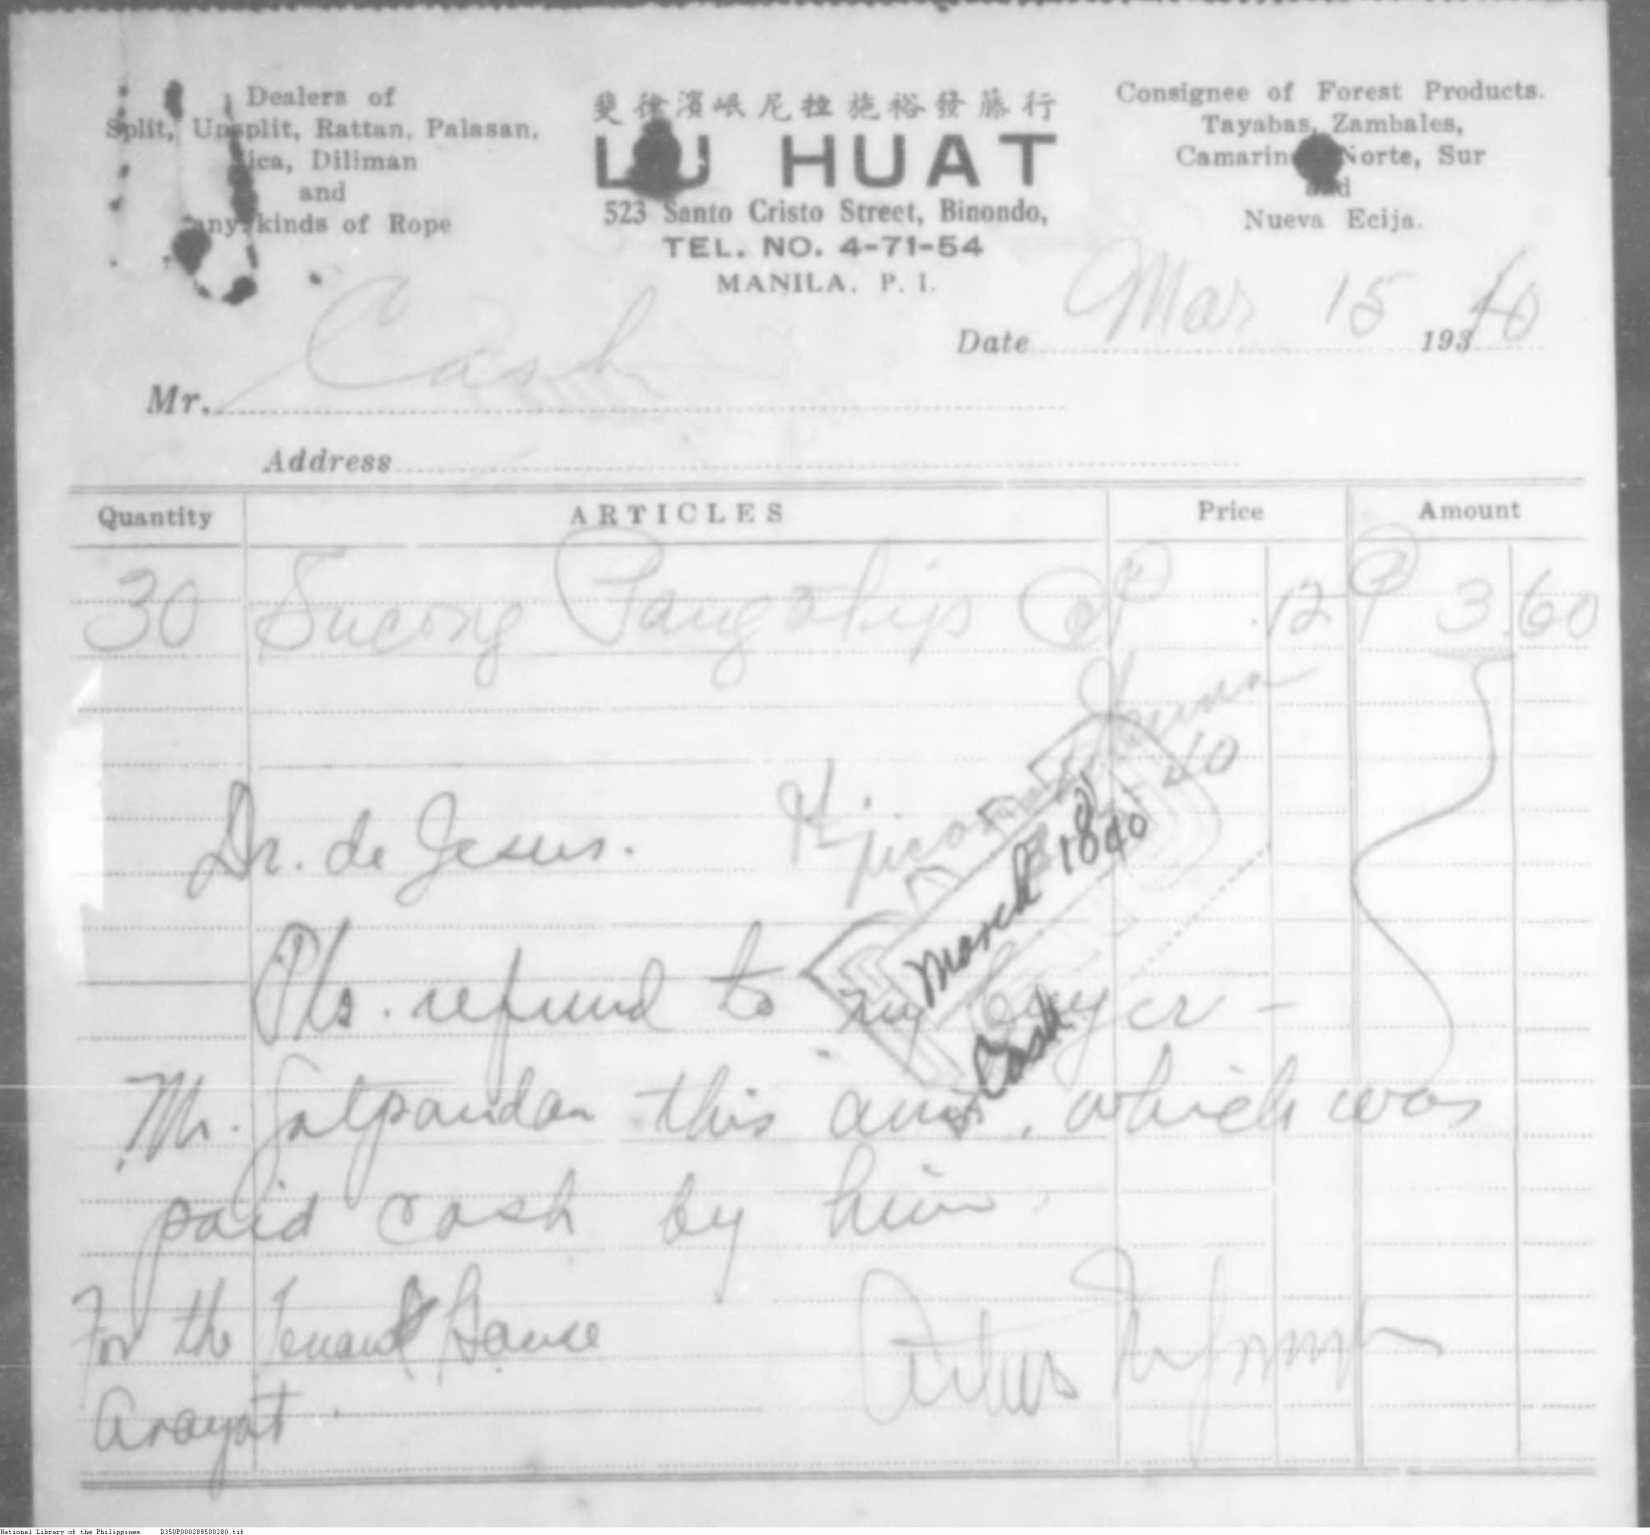 Dealers of
Split, Unsplit, Rattan, Palasan,
ica, Diliman
and
any kinds of Rope
行藤發裕施拉尼岷濱
LU HUAT
523 Santo Cristo Street, Binondo,
TEL. NO. 4-71-54
MANILA, P. I.
Consignee of Forest Products.
Tayabas, Zambales,
Camarines Norte, Sur
and
Nueva Ecija.
Date Mar 15 1940
Mr. Cash
Address
Quantity ARTICLES Price Amount
30 Sucong Pangohip @ ₱ .12 ₱ 3.60
Dr. de Jesus.
March 18 40
Cash
Pls. refund to my buyer -
Mr. Galpandan this amt, which was
paid cash by him.
For the Tenant House
Arayat.
National Library of the Philippines D350P000208500280.tif